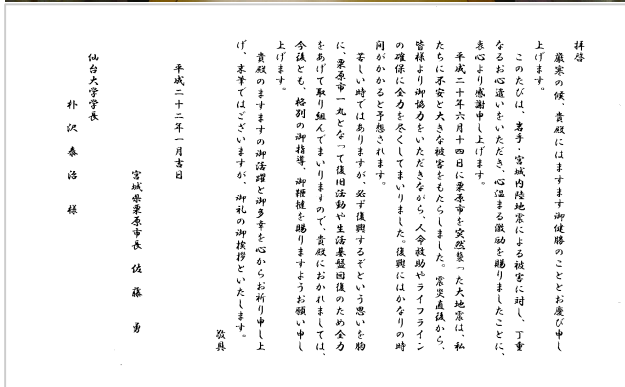 拝啓
厳寒の候、貴殿にはますます御健勝のこととお慶び申し
上げます。
このたびは、岩手・宮城内陸地震による被害に対し、丁重
なるお心遣いをいただき、心温まる激励を賜りましたことに、
衷心より感謝申し上げます。
平成二十年六月十四日に栗原市を突然襲った大地震は、私
たちに不安と大きな被害をもたらしました。震災直後から、
皆様より御協力をいただきながら、人命救助やライフライン
の確保に全力を尽くしてまいりました。復興にはかなりの時
間がかかると予想されます。
苦しい時ではありますが、必ず復興するぞという思いを胸
に、栗原市一丸となって復旧活動や生活基盤回復のため全力
をあげて取り組んでまいりますので、貴殿におかれましては、
今後とも、格別の御指導、御鞭撻を賜りますようお願い申し
上げます。
貴殿のますますの御活躍と御多幸を心からお祈り申し上
げ、末筆ではございますが、御礼の御挨拶といたします。
敬具
平成二十二年一月吉日
宮城県栗原市長 佐藤 勇
仙台大学学長
朴沢泰治 様